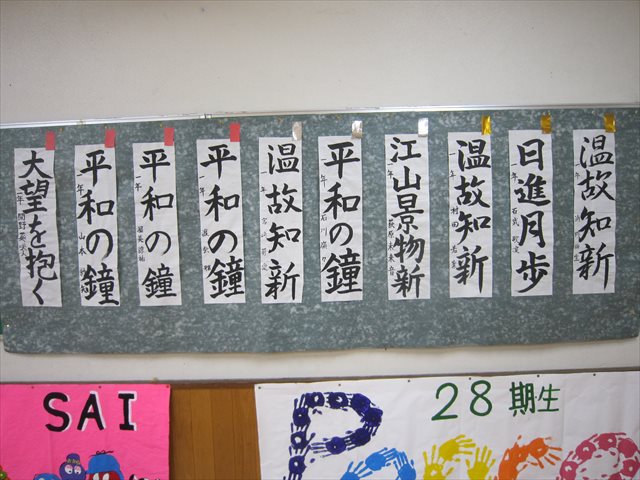 温故知新
一年
日進月歩
一年
温故知新
一年 村田
江山景物新
平和の鐘
一年 石川
温故知新
一年
平和の鐘
一年
平和の鐘
一年
平和の鐘
一年 山本
大望を抱く
一年
SAI
28期生